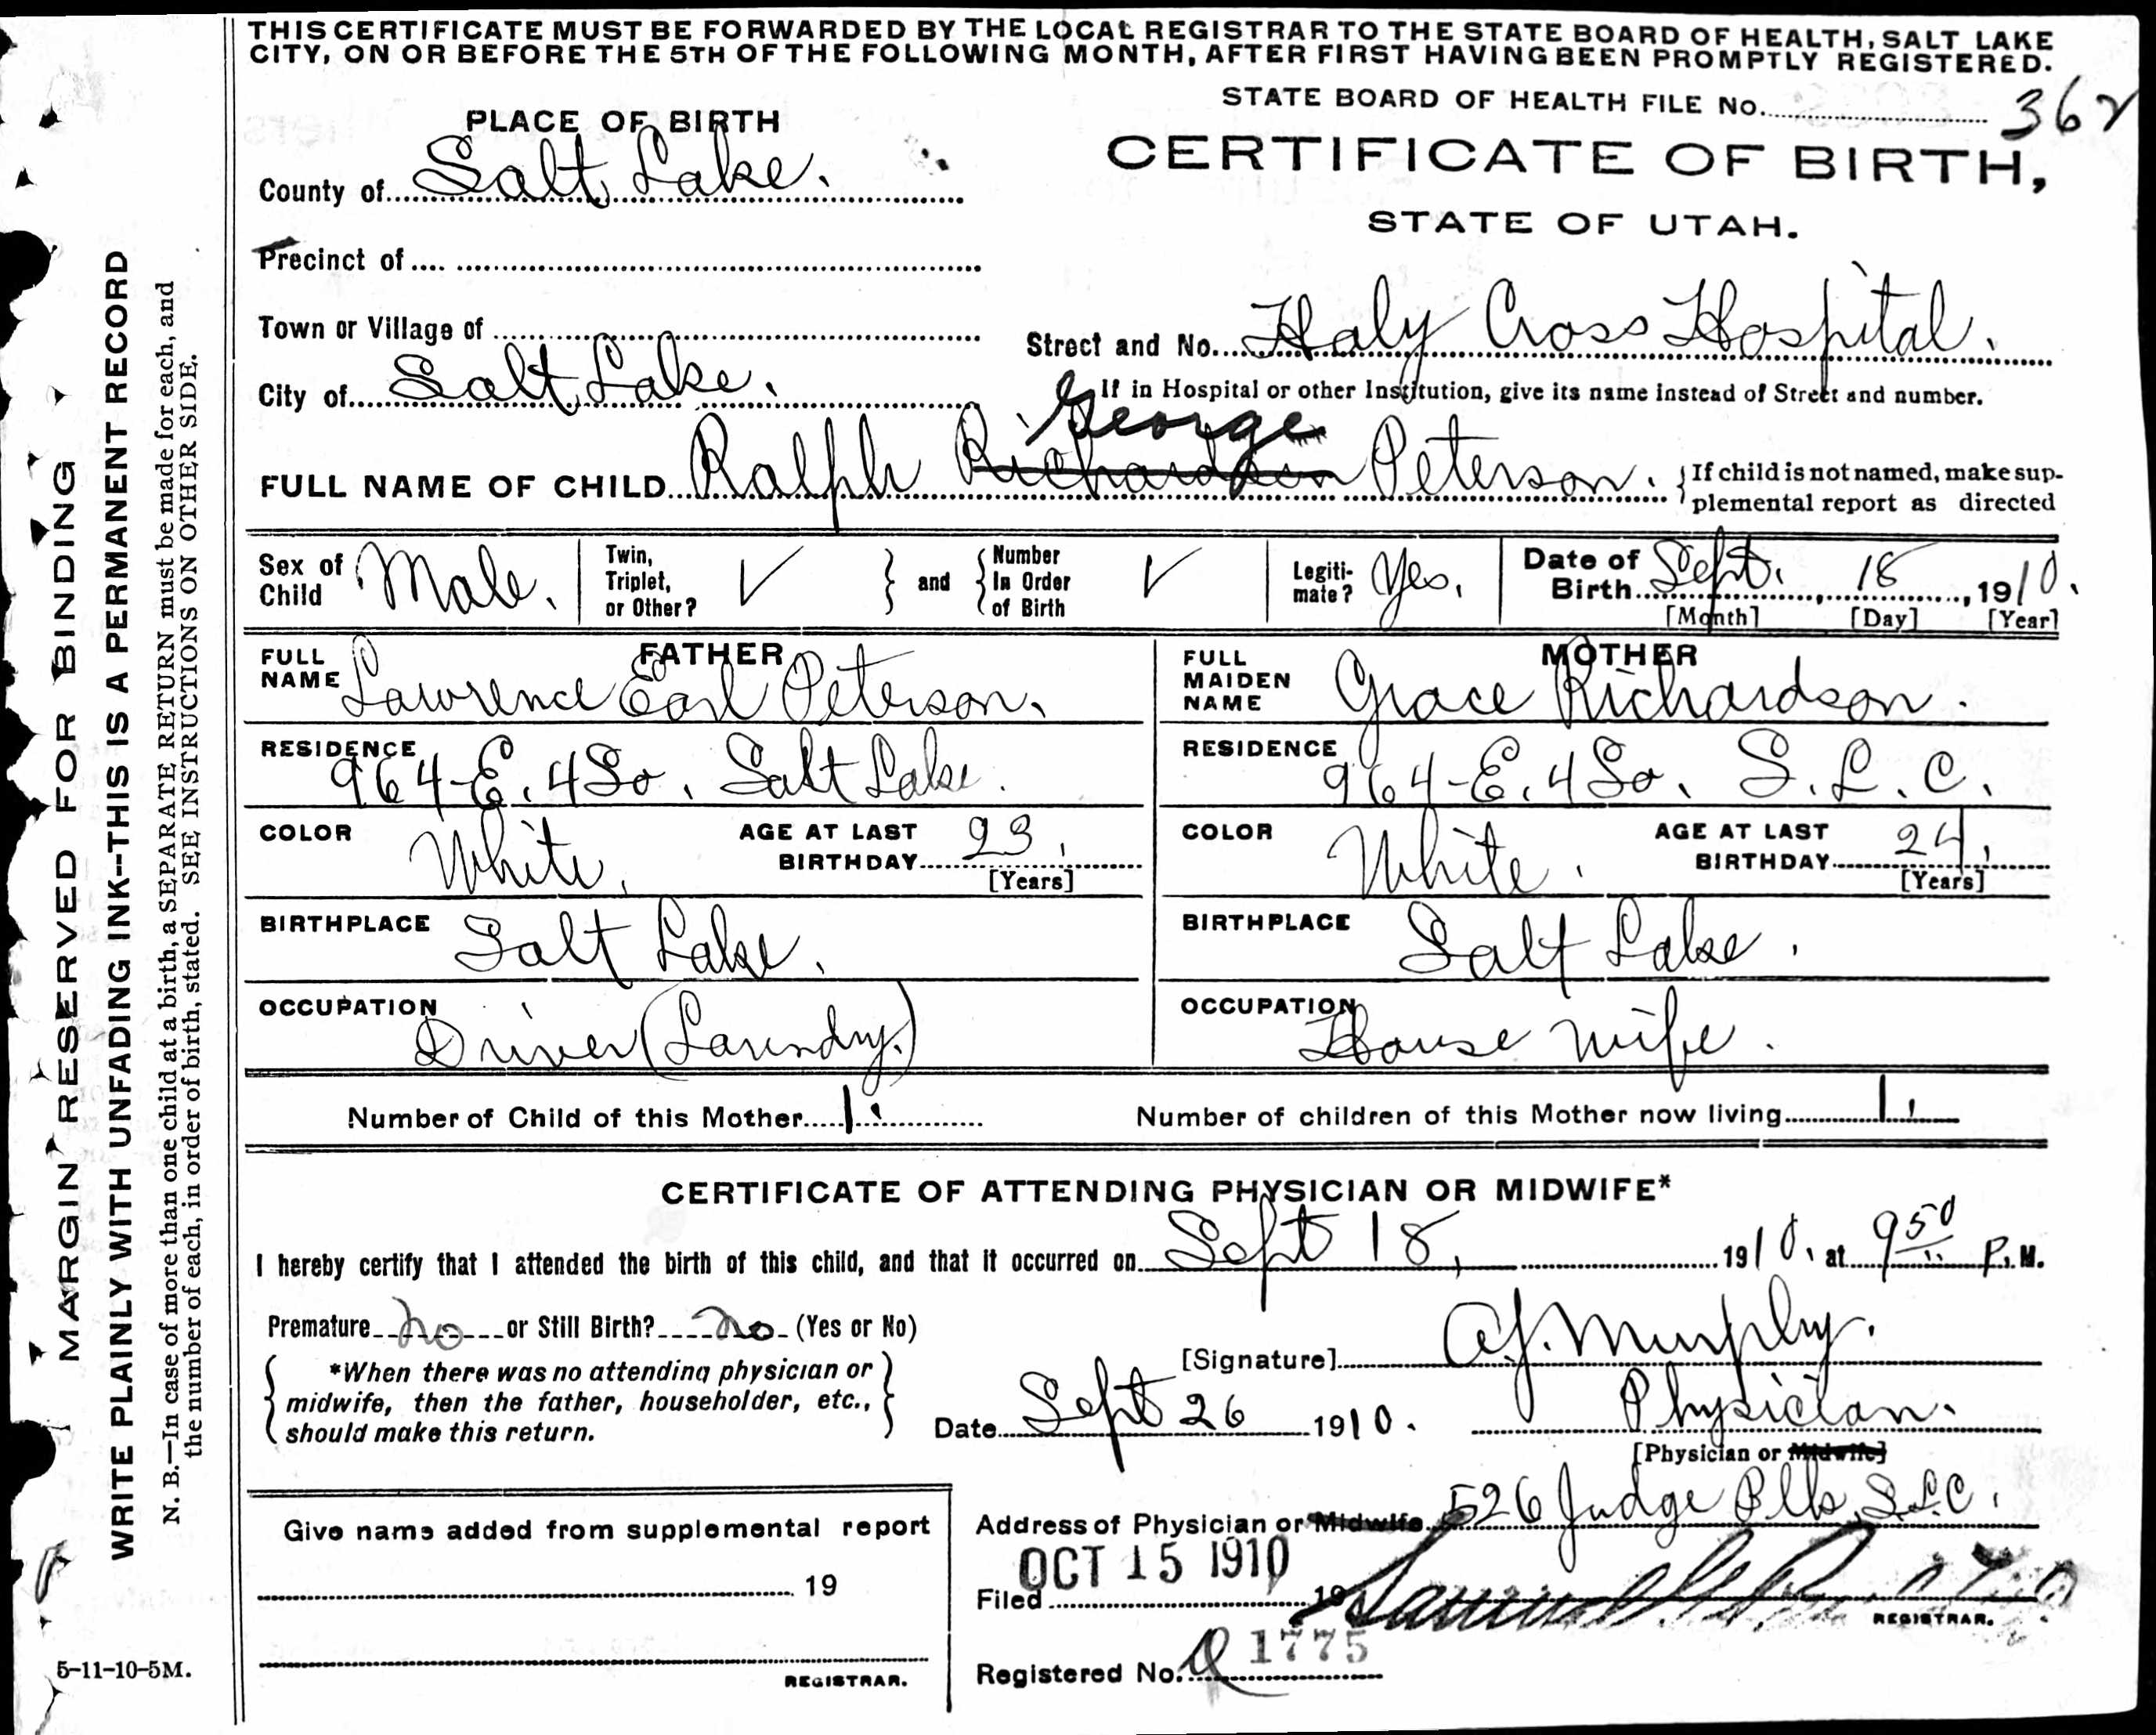 THIS CERTIFICATE MUST BE FORWARDED BY THE LOCAL REGISTRAR TO THE STATE BOARD OF HEALTH, SALT LAKE
CITY, ON OR BEFORE THE 5TH OF THE FOLLOWING MONTH, AFTER FIRST HAVING BEEN PROMPTLY REGISTERED.
STATE BOARD OF HEALTH FILE No. 362
PLACE OF BIRTH
CERTIFICATE OF BIRTH,
STATE OF UTAH.
County of Salt Lake.
Precinct of
Town or Village of
Street and No. Holy Cross Hospital.
If in Hospital or other Institution, give its name instead of Street and number.
City of Salt Lake.
George
FULL NAME OF CHILD Ralph Richardson Peterson.
{If child is not named, make sup-
plemental report as directed
Sex of Child Male.
Twin, Triplet, or Other? √
} and {
Number In Order of Birth √
Legiti-mate? Yes.
Date of Birth Sept. 18, 1910.
[Month] [Day] [Year]
FATHER
FULL NAME Lawrence Earl Peterson.
RESIDENCE 964-E. 4 So. Salt Lake.
COLOR White.
AGE AT LAST BIRTHDAY 23.
[Years]
BIRTHPLACE Salt Lake.
OCCUPATION Driver (Laundry.)
MOTHER
FULL MAIDEN NAME Grace Richardson.
RESIDENCE 964-E. 4 So. S.L.C.
COLOR White.
AGE AT LAST BIRTHDAY 24.
[Years]
BIRTHPLACE Salt Lake.
OCCUPATION House wife.
Number of Child of this Mother 1.
Number of children of this Mother now living 1.
CERTIFICATE OF ATTENDING PHYSICIAN OR MIDWIFE*
I hereby certify that I attended the birth of this child, and that it occurred on Sept 18, 1910. at 9 50 P. M.
Premature no or Still Birth? no (Yes or No)
{ *When there was no attending physician or
midwife, then the father, householder, etc.,
should make this return. }
[Signature] A.J. Murphy.
Date Sept 26 1910.
Physician.
[Physician or Midwife]
Address of Physician or Midwife 526 Judge Blk S.L.C.
Filed OCT 15 1910 19
Samuel
REGISTRAR.
Registered No. 1775
Give name added from supplemental report
19
REGISTRAR.
MARGIN RESERVED FOR BINDING
WRITE PLAINLY WITH UNFADING INK--THIS IS A PERMANENT RECORD
N. B.—In case of more than one child at a birth, a SEPARATE RETURN must be made for each, and
the number of each, in order of birth, stated. SEE INSTRUCTIONS ON OTHER SIDE.
5-11-10-5M.